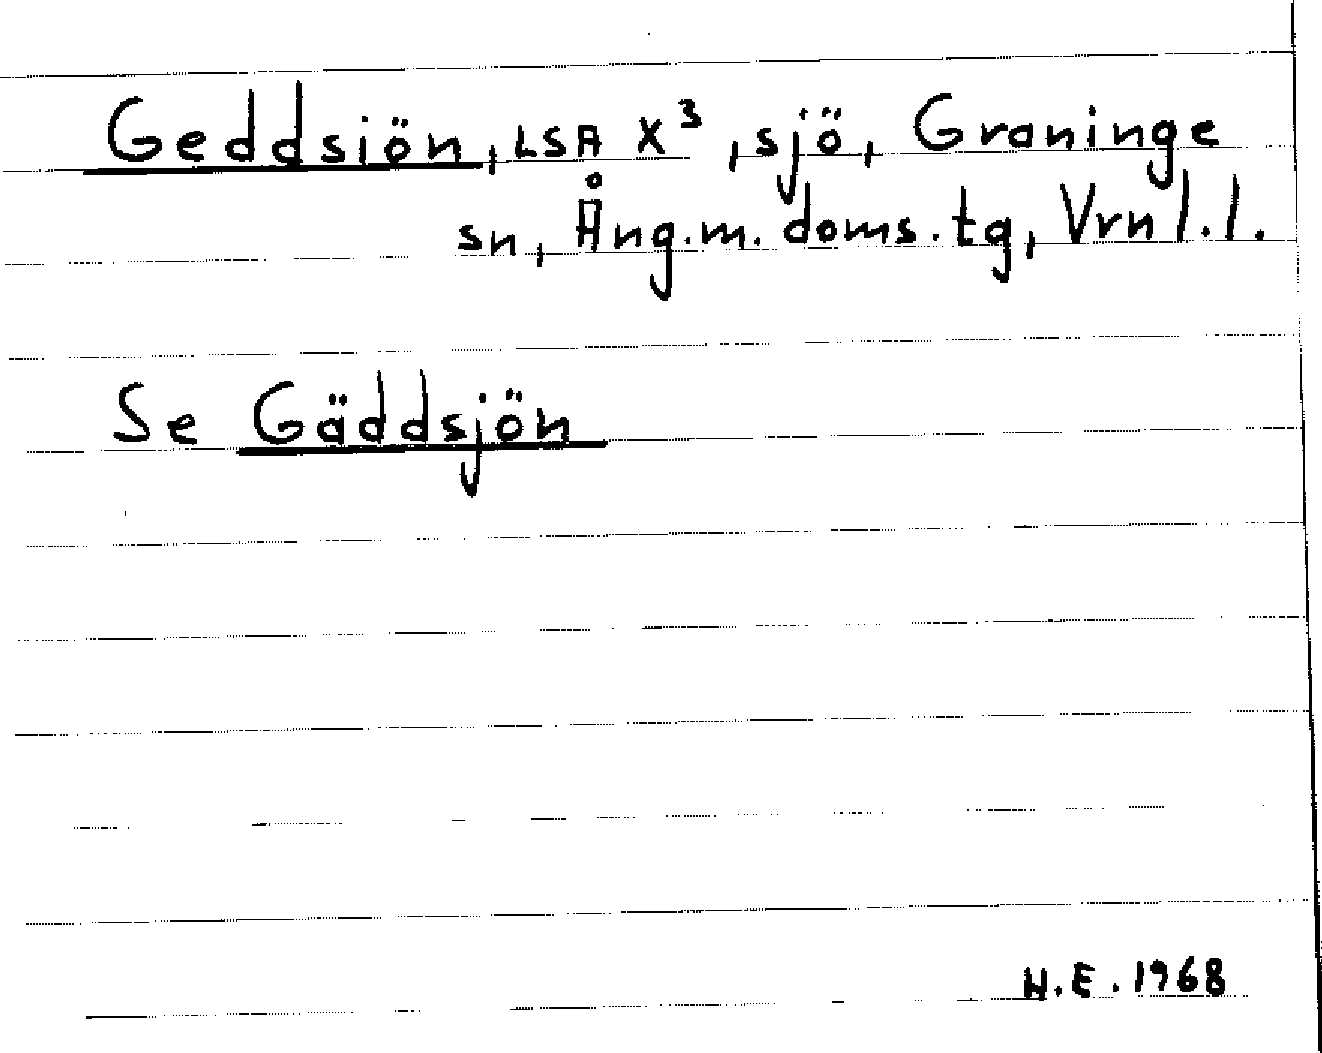 Geddsiön, LSA X³, sjö, Graninge
sn, Ång.m. doms.tg, Vrn l.l.
Se Gäddsjön
H.E. 1968